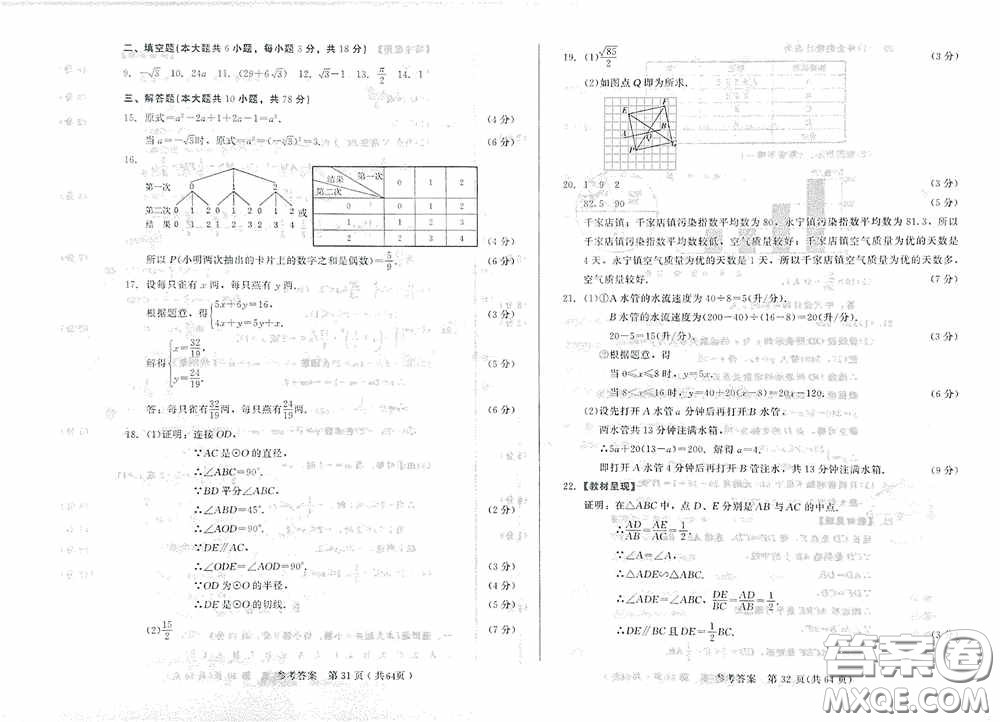 二、填空题(本大题共 6 小题，每小题 3 分，共 18 分)
9. －√3　10. 24a　11. (29＋6√3)　12. √3－1　13. π/2　14. 1
三、解答题(本大题共 10 小题，共 78 分)
15. 原式＝a²－2a＋1＋2a－1＝a². (4 分)
当 a＝－√3时，原式＝a²＝(－√3)²＝3. (6 分)
16.
第一次 0 1 2
第二次 0 1 2 0 1 2 0 1 2 或
结　果 0 1 2 1 2 3 2 3 4
结果 第一次 第二次 0 1 2
0 0 1 2
1 1 2 3
2 2 3 4
(4 分)
所以 P(小明两次抽出的卡片上的数字之和是偶数)＝5/9. (6 分)
17. 设每只雀有 x 两，每只燕有 y 两.
根据题意，得{5x＋6y＝16，4x＋y＝5y＋x. (3 分)
解得{x＝32/19，y＝24/19. (5 分)
答：每只雀有32/19两，每只燕有24/19两. (6 分)
18. (1)证明：连接 OD，
∵AC 是⊙O 的直径，
∴∠ABC＝90°.
∵BD 平分∠ABC，
∴∠ABD＝45°. (2 分)
∴∠AOD＝90°.
∵DE∥AC，
∴∠ODE＝∠AOD＝90°. (3 分)
∵OD 为⊙O 的半径， (4 分)
∴DE 是⊙O 的切线. (5 分)
(2)15/2 (7 分)
参考答案　第 31 页（共 64 页）
19. (1)√85/2 (3 分)
(2)如图点 Q 即为所求.
20. 1　9　2 (3 分)
82.5　90 (5 分)
千家店镇：千家店镇污染指数平均数为 80，永宁污染指数平均数为 81.3，所以
千家店镇污染指数平均数较低，空气质量较好；千家店镇空气质量为优的天数是
4 天，永宁镇空气质量为优的天数是 1 天，所以千家店镇空气质量为优的天数多，
空气质量较好. (7 分)
21. (1)①A 水管的水流速度为 40÷8＝5(升/分).
B 水管的水流速度为(200－40)÷(16－8)＝20(升/分).
20－5＝15(升/分). (3 分)
②根据题意，得
当 0≤x≤8 时，y＝5x.
当 8≤x≤16 时，y＝40＋20(x－8)＝20x－120. (6 分)
(2)设先打开 A 水管 a 分钟后再打开 B 水管，
两水管共 13 分钟注满水箱，
∴5a＋20(13－a)＝200. 解得 a＝4.
即打开 A 水管 4 分钟后再打开 B 管注水，共 13 分钟注满水箱. (9 分)
22. 【教材呈现】
证明：在△ABC 中，点 D、E 分别是 AB 与 AC 的中点.
∴AD/AB＝AE/AC＝1/2.
∵∠A＝∠A，
∴△ADE∽△ABC.
∴∠ADE＝∠ABC，DE/BC＝AD/AB＝1/2.
∴DE∥BC 且 DE＝1/2BC. (3
参考答案　第 32 页(共 64 页)
答案圈
MXQE.COM